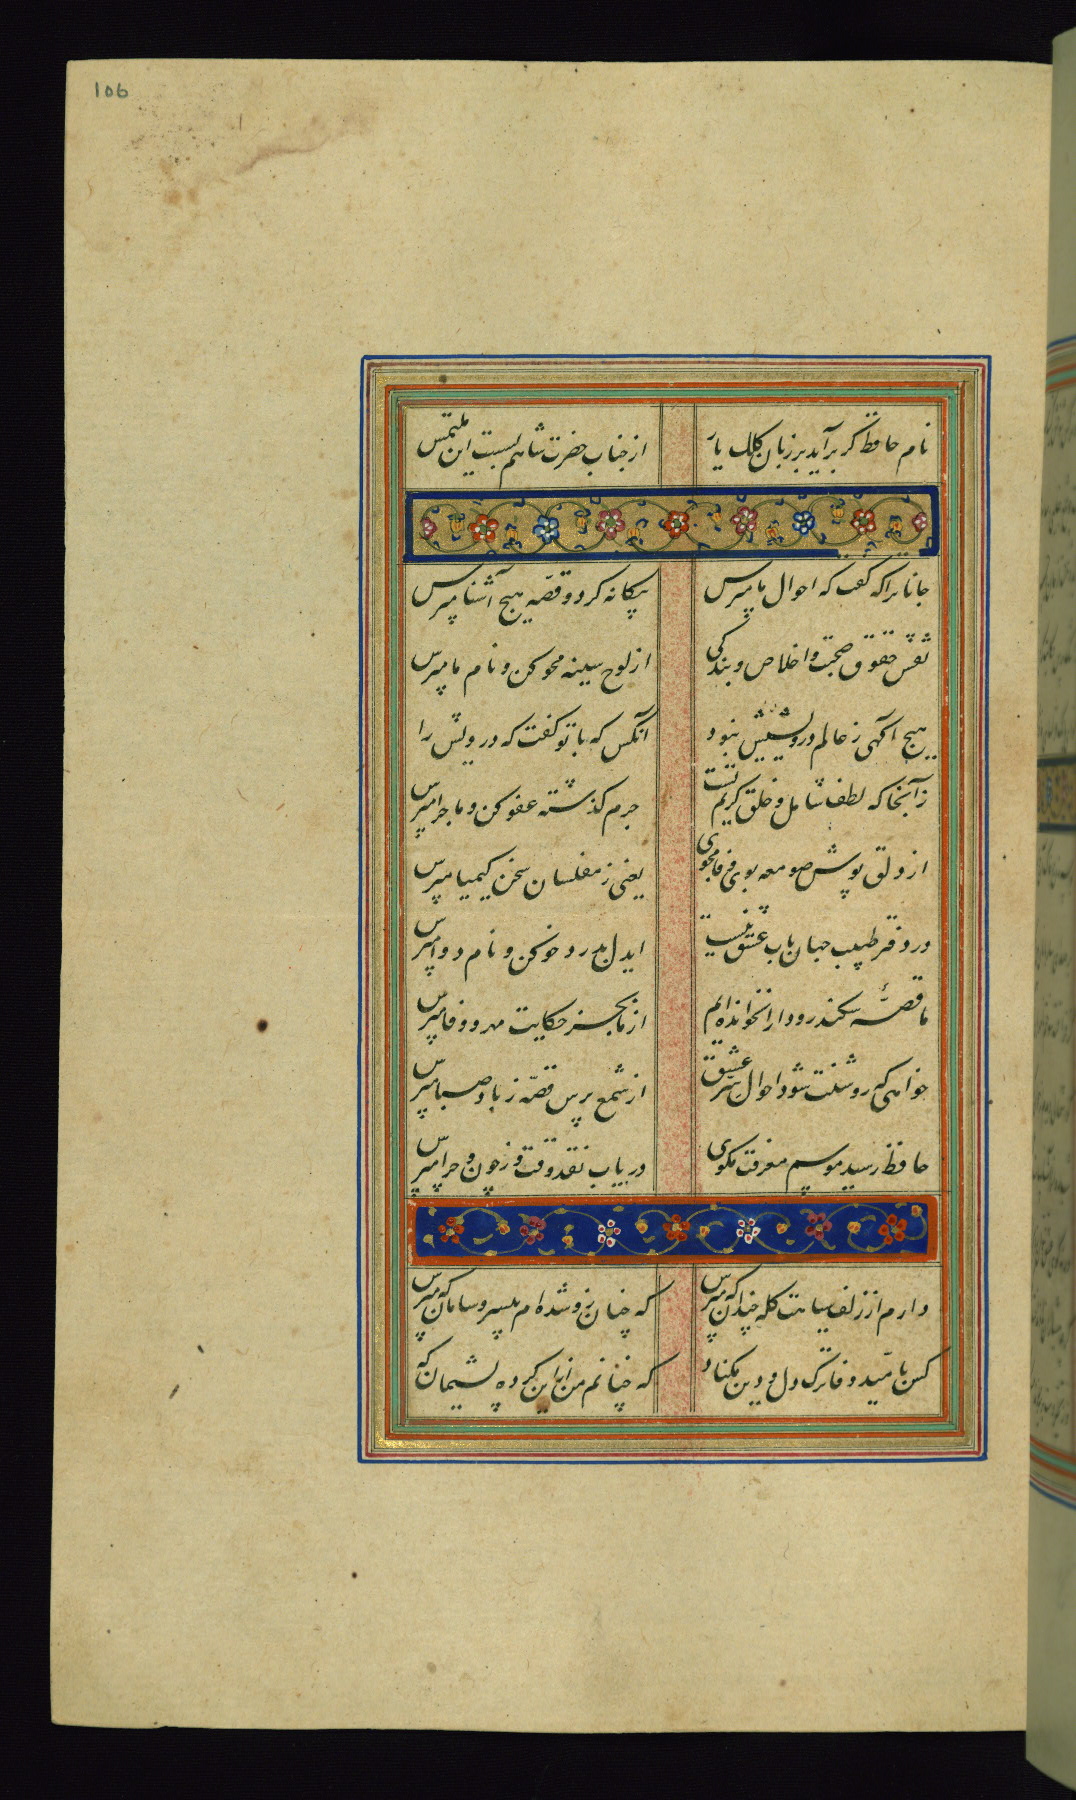 106
نام حافظ گر برآید بر زبان کلک یار
از جناب حضرت شاهم بسست این ملتمس
جانا ترا که گفت که احوال ما مپرس
بیگانه گرد و قصه هیچ آشنا مپرس
نقش حقوق صحبت و اخلاص و بندگی
از لوح سینه محو کن و نام ما مپرس
هیچ آگهی ز عالم درویشیش نبود
آنکس که با تو گفت که درویش را مپرس
زآنجا که لطف شامل و خلق کریم تست
جرم گذشته عفو کن و ماجرا مپرس
از دلق پوش صومعه بوی وفا مجوی
یعنی ز مفلسان سخن کیمیا مپرس
در دفتر طبیب جهان باب عشق نیست
ایدل بدرد خو کن و نام دوا مپرس
ما قصهٔ سکندر و دارا نخوانده‌ایم
از ما بجز حکایت مهر و وفا مپرس
خواهی که روشنت شود احوال سر عشق
از شمع پرس قصه ز باد صبا مپرس
حافظ رسید موسم معرفت مگوی
دریاب نقد وقت و ز چون و چرا مپرس
دارم از زلف سیاهت گله چندان که مپرس
که چنان زو شده‌ام بی‌سر و سامان که مپرس
کس بامید وفا ترک دل و دین مکناد
که چنانم من ازین کرده پشیمان که